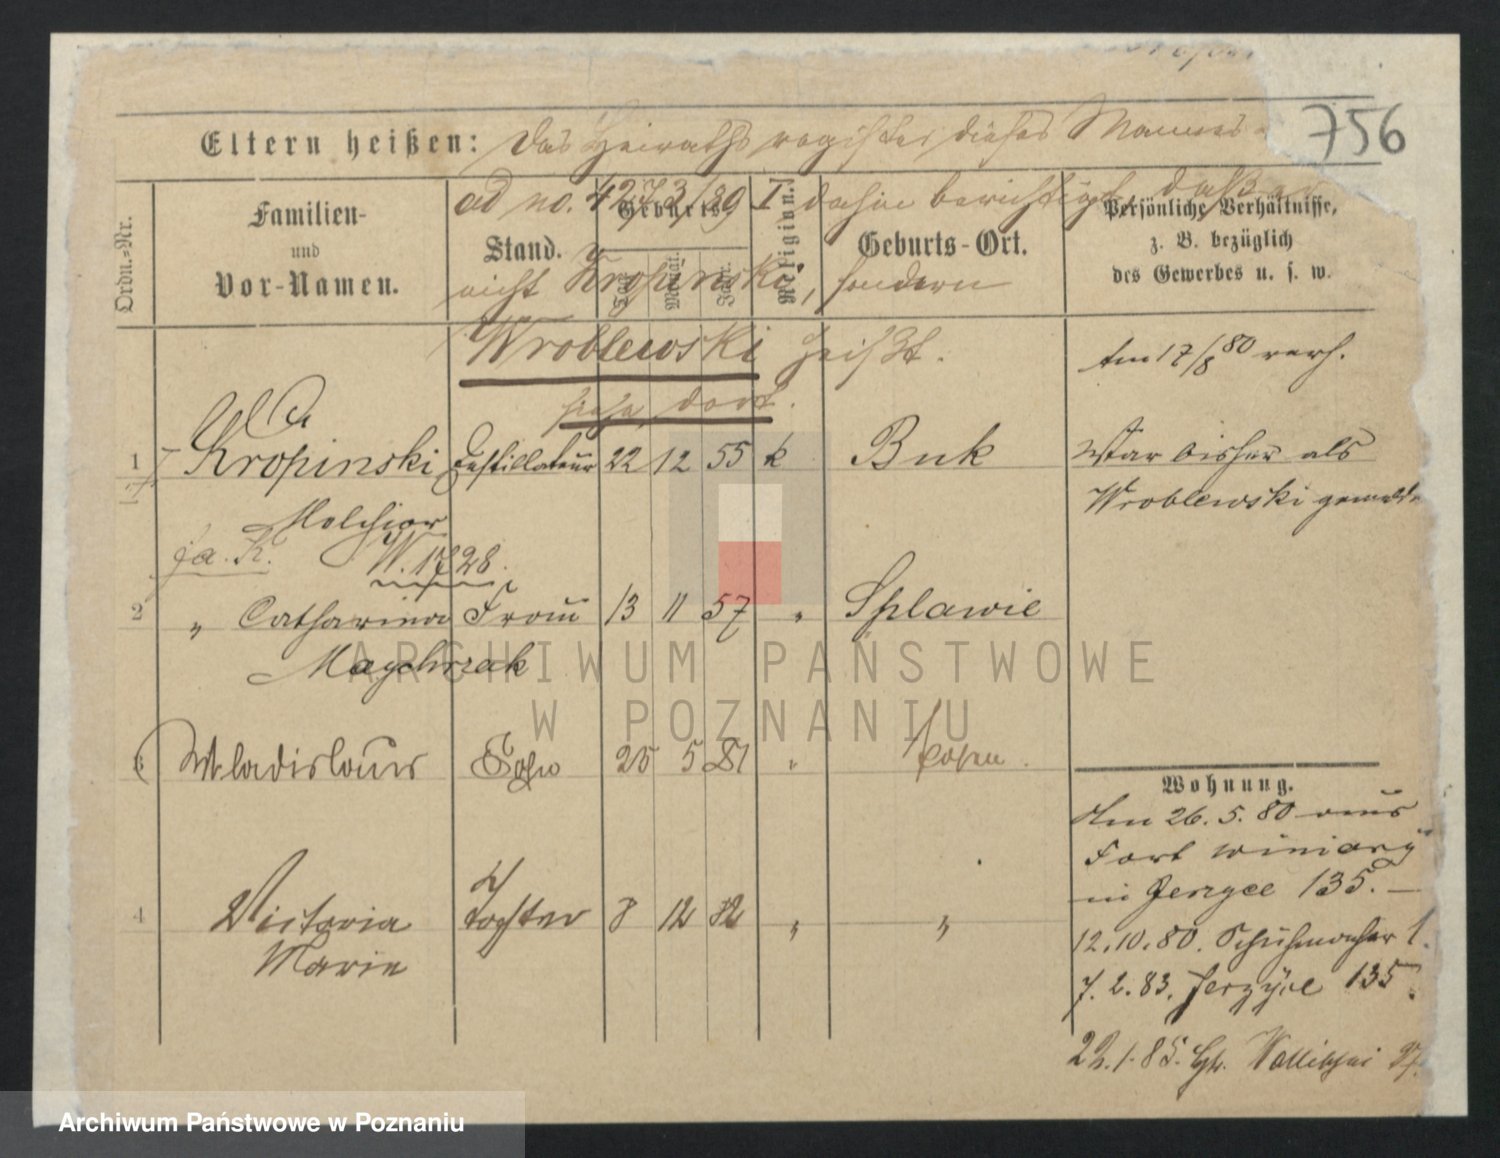 756
Eltern heißen: Das Heiraths register dieses Mannes
ad no. 4273/89 I dahin berichtigt, daß er
nicht Kropinski, sondern
Wroblewski heißt.
siehe dort.
Ordn.-Nr.
Familien-
und
Vor-Namen.
Stand.
Geburts-
Tag.
Monat.
Jahr.
Religion.
Geburts-Ort.
Persönliche Verhältnisse,
z. B. bezüglich
des Gewerbes u. s. w.
Am 17/8 80 verh.
1 Kropinski Destillateur 22 12 55 k Buk War bisher als
Wroblewski gemeldet
Melchior
W. 1728.
2 " Catharina Frau 13 11 57 " Splawie
Maychrzak
3 Wladislaus Sohn 25 5 81 " Posen.
Wohnung.
Am 26. 5. 80 aus
Fort Winiary
in Jerzyce 135. —
4 Victoria Tochter 8 12 82 " "
Marie
12. 10. 80. Schuhmacher 1.
7. 2. 83. Jerzyce 135.
22. 1. 85. Wallischei
ARCHIWUM PAŃSTWOWE
W POZNANIU
Archiwum Państwowe w Poznaniu